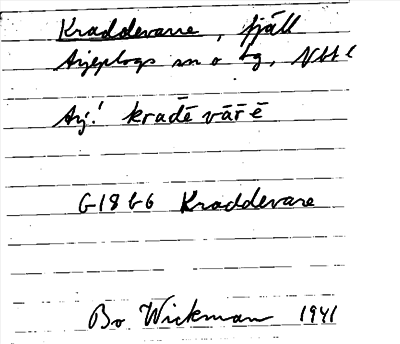 Kraddevare, fjäll
Arjeplogs sn o lg, Nbtl
Arj.! kradē vāřē
G18 G6 Kraddevare
Bo Wickman 1941